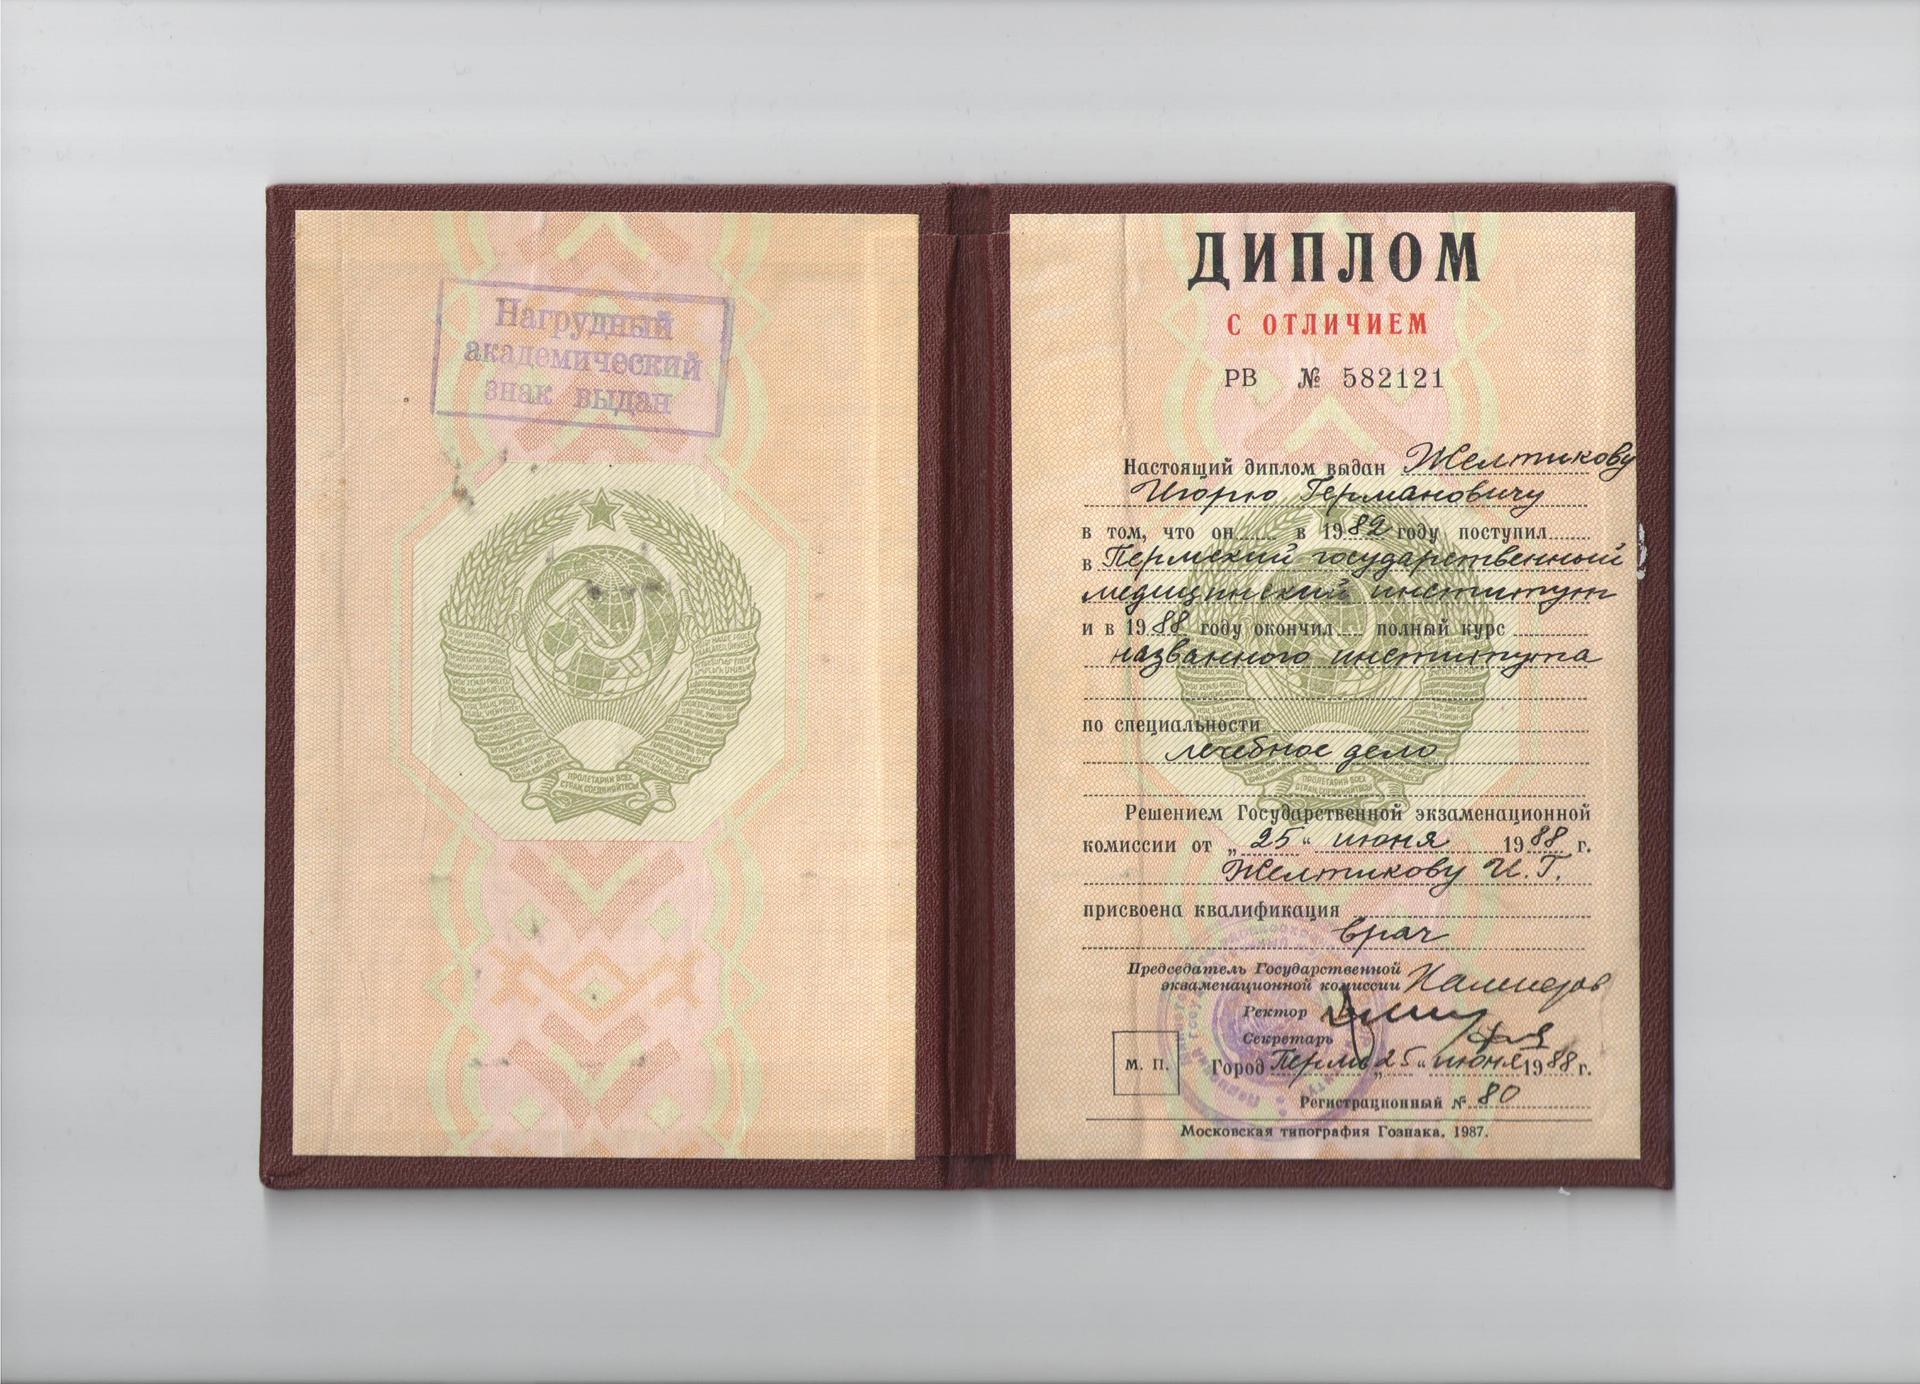 Нагрудный
академический
знак выдан
ПРОЛЕТАРИИ ВСЕХ
СТРАН, СОЕДИНЯЙТЕСЬ!
ДИПЛОМ
С ОТЛИЧИЕМ
РВ № 582121
Настоящий диплом выдан Желтикову
Игорю Германовичу
в том, что он в 1982 году поступил
в Пермский государственный
медицинский институт
и в 1988 году окончил полный курс
названного института
по специальности
лечебное дело
ПРОЛЕТАРИИ ВСЕХ
СТРАН, СОЕДИНЯЙТЕСЬ!
Решением Государственной экзаменационной
комиссии от „25“ июня 1988 г.
Желтикову И.Г.
присвоена квалификация
врач
Председатель Государственной
экзаменационной комиссии
Ректор
Секретарь
М. П. Город Пермь „25“ июня 1988 г.
Регистрационный № 80
Московская типография Гознака. 1987.